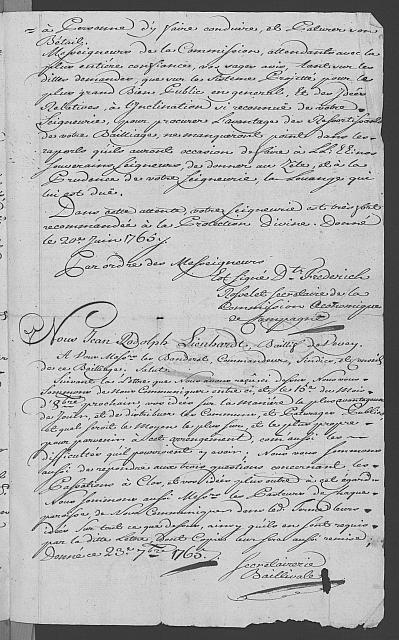 à Personne d'y faire conduire, et Paturer son
Bétail.
Messeigneurs de la Commission, attendants avec la
plus entiére confiance, un sage avis, tant sur les
dittes demandes, que sur les Sistemes Projettés pour le
plus grand Bien Public en general, et des Idées
Relatives à l'Inclination si reconnue de votre
Seigneurie, pour procurer l'avantage des Ressortissants
de votre Bailliage, ne manqueront point dans les
raports qu'ils auront occasion de faire à LL. EE: nos
Souverains Seigneurs de donner au Zéle, et à la
Prudence de votre Seigneurie, la Louange qui
lui est duë.
Dans cette attente, votre Seigneurie est très fort
recommandée à la Protection Divine. Donné
le 20e Juin 1765.
Par ordre des Messeigneurs
Est signé Dl. Frederich
Secretaire de la
Commission Œconomique
de Campagne
Nous Jean Rodolph Lienhardt, Baillif de Vevay.
A Vous Messrs. les Banderet, Commandeurs, Sindics, et Conseil
de ces Bailliage, Salut.
Suivant la Lettre que Nous avons reçüe de dessus, Nous vous
sommons de Nous Communiquer entre ci, et le 15e du Mois
prochain, vos idées sur la Maniére la plus avantageuse
de Jouir, et de distribuer les Communs, et Paturages Publics
et quel seroit le Moyen le plus sur, et le plus propre
pour parvenir à cet arrangement, comm'aussi les
difficultés qui pouroient y avoir; Nous vous sommons
aussi de repondre aux trois questions concernant les
Passations à Clos, et vos idées plus outre à cet égard.
Nous sommons aussi Messrs. les Pasteurs de chaque
paroisse, de Nous Communiquer dans led. terme leurs
idées sur tout ce que dessus, ainsi qu'ils en sont requis
par la ditte Lettre, dont Copie leur sera aussi remise,
Donné ce 23e 7bre 1765.
Secretairerie
Baillivale